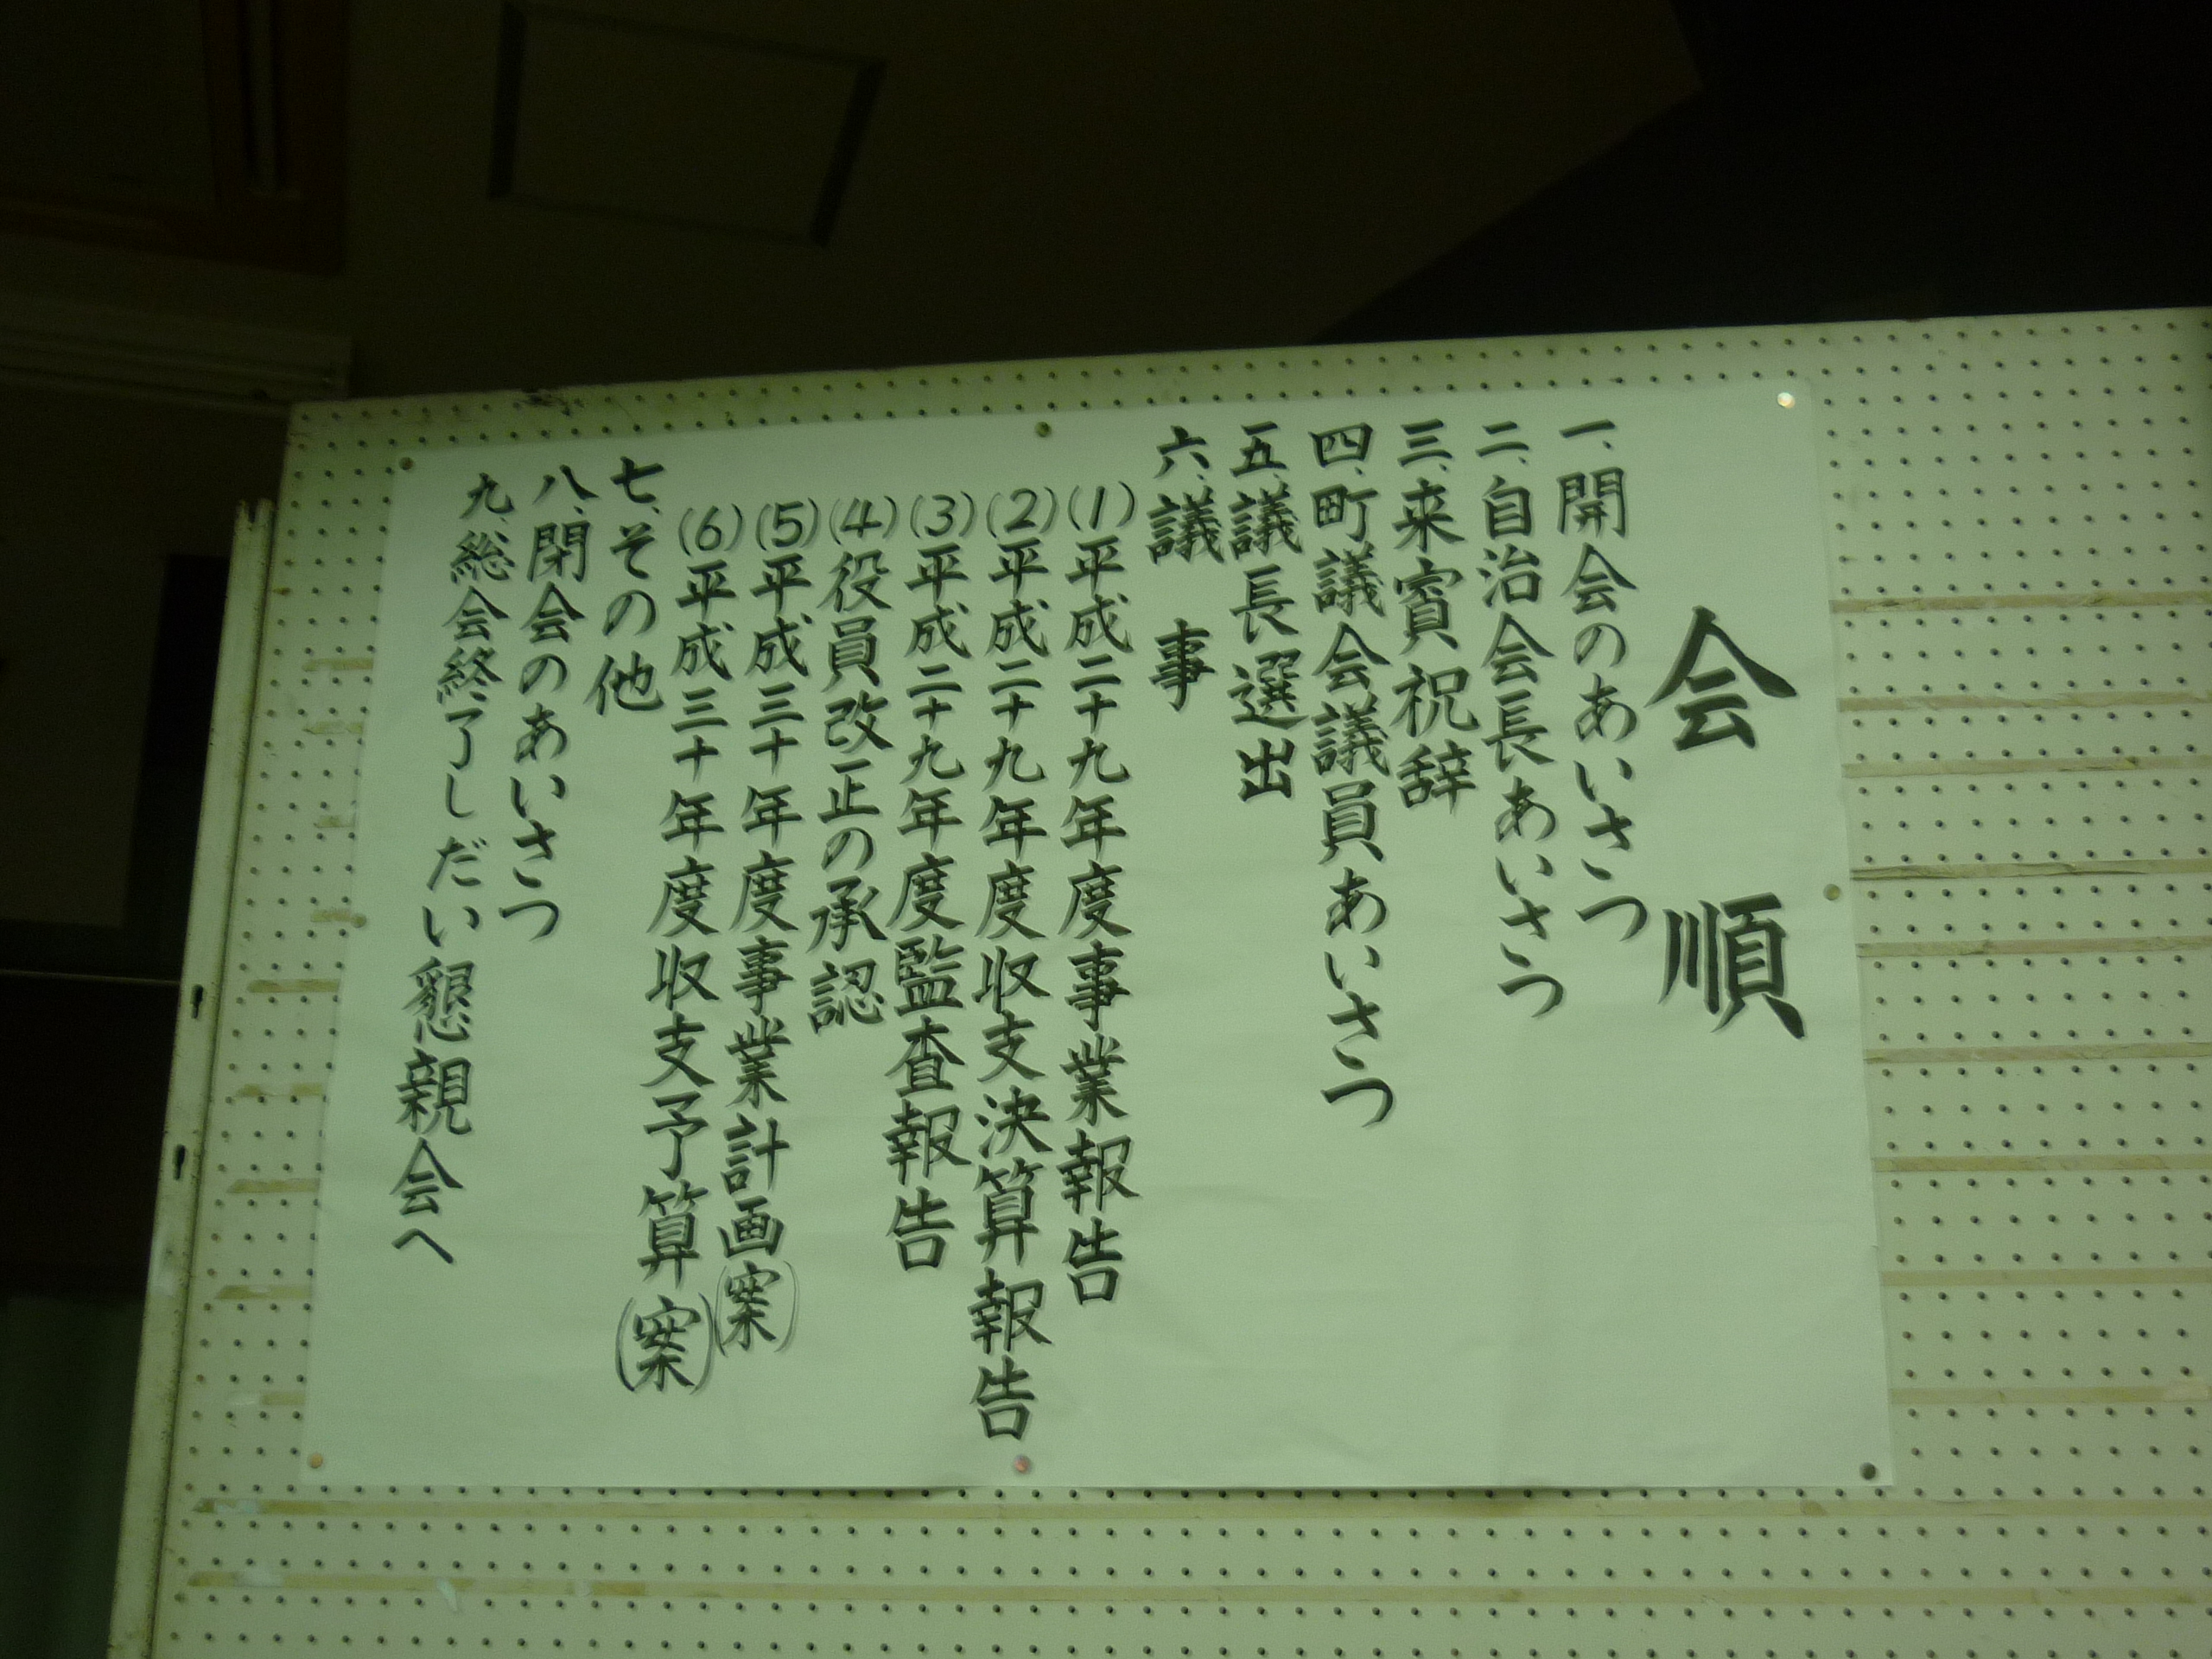 会 順
一、開会のあいさつ
二、自治会長あいさつ
三、来賓祝辞
四、町議会議員あいさつ
五、議長選出
六、議 事
(1)平成二十九年度事業報告
(2)平成二十九年度収支決算報告
(3)平成二十九年度監査報告
(4)役員改正の承認
(5)平成三十年度事業計画(案)
(6)平成三十年度収支予算(案)
七、その他
八、閉会のあいさつ
九、総会終了しだい懇親会へ